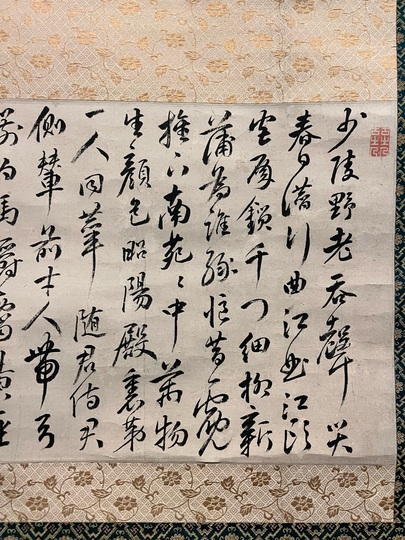 少陵野老吞聲哭
春日潛行曲江曲江頭
宮殿鎖千門細柳新
蒲為誰綠憶昔霓
旌下南苑〻中萬物
生顏色昭陽殿裏第
一人同輦隨君侍君
側輦前才人帶弓
箭白馬嚼齧黃